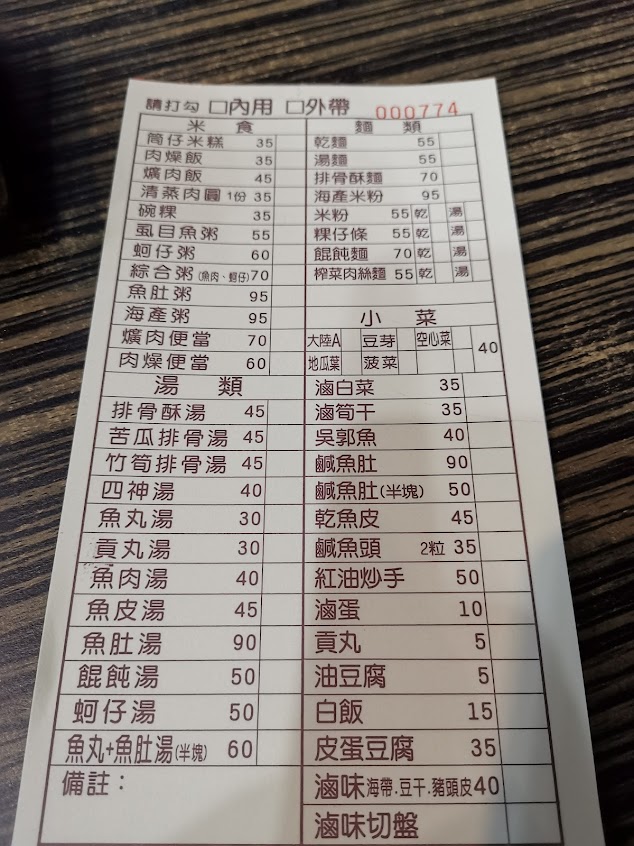 請打勾 □內用 □外帶 000774
米 食
筒仔米糕 35
肉燥飯 35
爌肉飯 45
清蒸肉圓 1份 35
碗粿 35
虱目魚粥 55
蚵仔粥 60
綜合粥(魚肉、蚵仔) 70
魚肚粥 95
海產粥 95
爌肉便當 70
肉燥便當 60
湯 類
排骨酥湯 45
苦瓜排骨湯 45
竹筍排骨湯 45
四神湯 40
魚丸湯 30
貢丸湯 30
魚肉湯 40
魚皮湯 45
魚肚湯 90
餛飩湯 50
蚵仔湯 50
魚丸+魚肚湯(半塊) 60
備註：
麵 類
乾麵 55
湯麵 55
排骨酥麵 70
海產米粉 95
米粉 55 乾 湯
粿仔條 55 乾 湯
餛飩麵 70 乾 湯
榨菜肉絲麵 55 乾 湯
小 菜
大陸A 豆芽 空心菜 40
地瓜葉 菠菜
滷白菜 35
滷筍干 35
吳郭魚 40
鹹魚肚 90
鹹魚肚(半塊) 50
乾魚皮 45
鹹魚頭 2粒 35
紅油炒手 50
滷蛋 10
貢丸 5
油豆腐 5
白飯 15
皮蛋豆腐 35
滷味 海帶.豆干.豬頭皮 40
滷味切盤